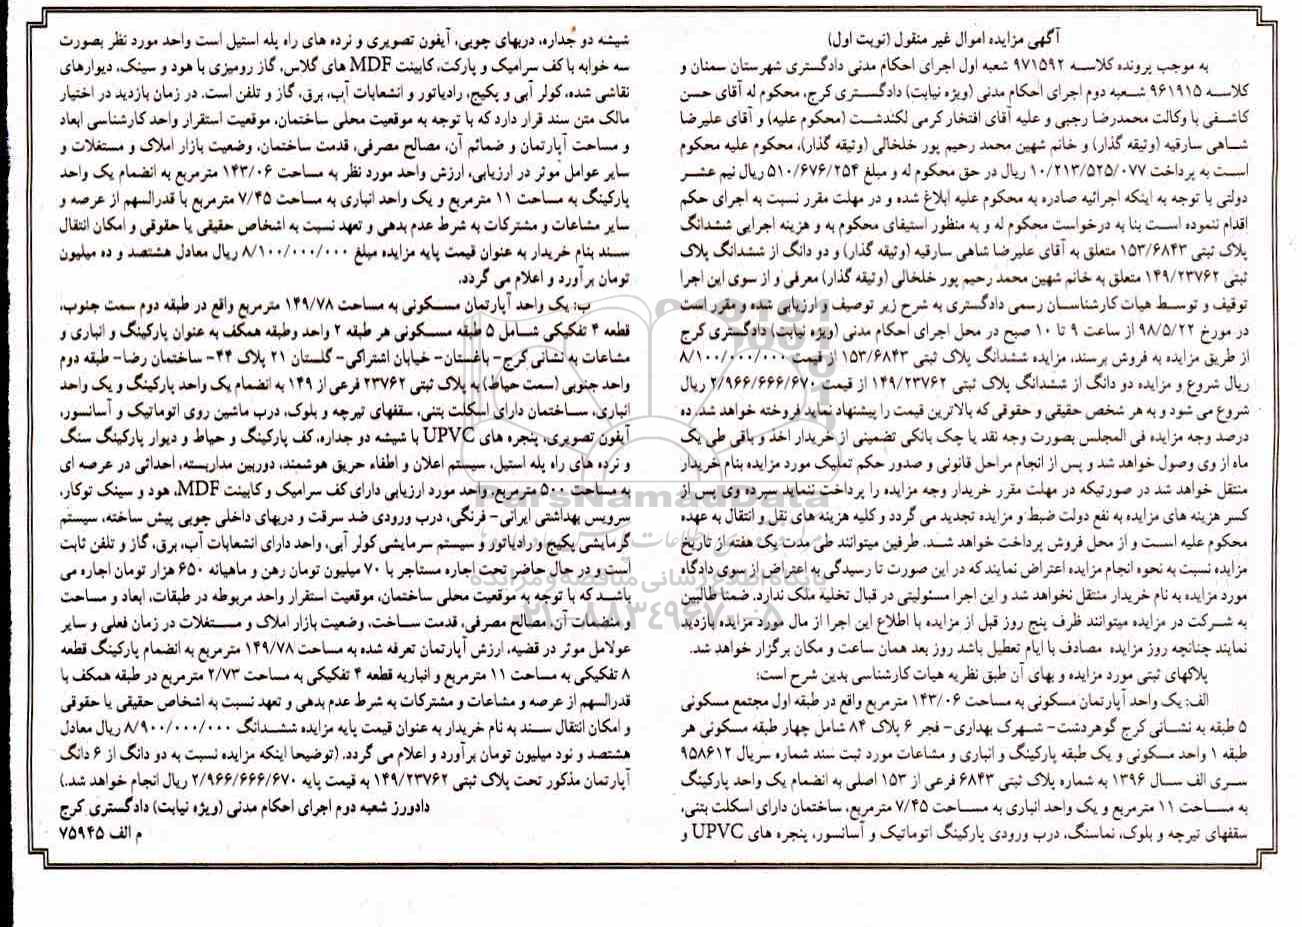 آگهی مزایده اموال غیر منقول (نوبت اول)
به موجب پرونده کلاسه ۹۷۱۵۹۲ شعبه اول اجرای احکام مدنی دادگستری شهرستان سمنان و
کلاسه ۹۶۱۹۱۵ شعبه دوم اجرای احکام مدنی (ویژه نیابت) دادگستری کرج، محکوم له آقای حسن
کاشفی با وکالت محمدرضا رجبی و علیه آقای افتخار کرمی لکندشت (محکوم علیه) و آقای علیرضا
شاهی سارقیه (وثیقه گذار) و خانم شهین محمد رحیم پور خلخالی (وثیقه گذار)، محکوم علیه محکوم
است به پرداخت ۱۰/۲۱۳/۵۲۵/۰۷۷ ریال در حق محکوم له و مبلغ ۵۱۰/۶۷۶/۲۵۴ ریال نیم عشر
دولتی با توجه به اینکه اجرائیه صادره به محکوم علیه ابلاغ شده و در مهلت مقرر نسبت به اجرای حکم
اقدام ننموده است بنا به درخواست محکوم له و به منظور استیفای محکوم به و هزینه اجرایی ششدانگ
پلاک ثبتی ۱۵۳/۶۸۴۳ متعلق به آقای علیرضا شاهی سارقیه (وثیقه گذار) و دو دانگ از ششدانگ پلاک
ثبتی ۱۴۹/۲۳۷۶۲ متعلق به خانم شهین محمد رحیم پور خلخالی (وثیقه گذار) معرفی و از سوی این اجرا
توقیف و توسط هیات کارشناسان رسمی دادگستری به شرح زیر توصیف و ارزیابی شده و مقرر است
در مورخ ۹۸/۵/۲۲ از ساعت ۹ تا ۱۰ صبح در محل اجرای احکام مدنی (ویژه نیابت) دادگستری کرج
از طریق مزایده به فروش برسند، مزایده ششدانگ پلاک ثبتی ۱۵۳/۶۸۴۳ از قیمت ۸/۱۰۰/۰۰۰/۰۰۰
ریال شروع و مزایده دو دانگ از ششدانگ پلاک ثبتی ۱۴۹/۲۳۷۶۲ از قیمت ۲/۹۶۶/۶۶۶/۶۷۰ ریال
شروع می شود و به هر شخص حقیقی و حقوقی که بالاترین قیمت را پیشنهاد نماید فروخته خواهد شد. ده
درصد وجه مزایده فی المجلس بصورت وجه نقد یا چک بانکی تضمینی از خریدار اخذ و باقی طی یک
ماه از وی وصول خواهد شد و پس از انجام مراحل قانونی و صدور حکم تملیک مورد مزایده بنام خریدار
منتقل خواهد شد در صورتیکه در مهلت مقرر خریدار وجه مزایده را پرداخت ننماید سپرده وی پس از
کسر هزینه های مزایده به نفع دولت ضبط و مزایده تجدید می گردد و کلیه هزینه های نقل و انتقال به عهده
محکوم علیه است و از محل فروش پرداخت خواهد شد. طرفین میتوانند طی مدت یک هفته از تاریخ
مزایده نسبت به نحوه انجام مزایده اعتراض نمایند که در این صورت تا رسیدگی به اعتراض از سوی دادگاه
مورد مزایده به نام خریدار منتقل نخواهد شد و این اجرا مسئولیتی در قبال تخلیه ملک ندارد. ضمنا طالبین
به شرکت در مزایده میتوانند ظرف پنج روز قبل از مزایده با اطلاع این اجرا از مال مورد مزایده بازدید
نمایند چنانچه روز مزایده مصادف با ایام تعطیل باشد روز بعد همان ساعت و مکان برگزار خواهد شد.
پلاکهای ثبتی مورد مزایده و بهای آن طبق نظریه هیات کارشناسی بدین شرح است:
الف: یک واحد آپارتمان مسکونی به مساحت ۱۴۳/۰۶ مترمربع واقع در طبقه اول مجتمع مسکونی
۵ طبقه به نشانی کرج گوهردشت- شهرک بهداری- فجر ۶ پلاک ۸۴ شامل چهار طبقه مسکونی هر
طبقه ۱ واحد مسکونی و یک طبقه پارکینگ و انباری و مشاعات مورد ثبت سند شماره سریال ۹۵۸۶۱۲
سری الف سال ۱۳۹۶ به شماره پلاک ثبتی ۶۸۴۳ فرعی از ۱۵۳ اصلی به انضمام یک واحد پارکینگ
به مساحت ۱۱ مترمربع و یک واحد انباری به مساحت ۷/۴۵ مترمربع، ساختمان دارای اسکلت بتنی،
سقفهای تیرچه و بلوک، نماسنگ، درب ورودی پارکینگ اتوماتیک و آسانسور، پنجره های UPVC و
شیشه دو جداره، دربهای چوبی، آیفون تصویری و نرده های راه پله استیل است واحد مورد نظر بصورت
سه خوابه با کف سرامیک و پارکت، کابینت MDF های گلاس، گاز رومیزی با هود و سینک، دیوارهای
نقاشی شده، کولر آبی و پکیج، رادیاتور و انشعابات آب، برق، گاز و تلفن است. در زمان بازدید در اختیار
مالک متن سند قرار دارد که با توجه به موقعیت محلی ساختمان، موقعیت استقرار واحد کارشناسی ابعاد
و مساحت آپارتمان و ضمائم آن، مصالح مصرفی، قدمت ساختمان، وضعیت بازار املاک و مستغلات و
سایر عوامل موثر در ارزیابی، ارزش واحد مورد نظر به مساحت ۱۴۳/۰۶ مترمربع به انضمام یک واحد
پارکینگ به مساحت ۱۱ مترمربع و یک واحد انباری به مساحت ۷/۴۵ مترمربع با قدرالسهم از عرصه و
سایر مشاعات و مشترکات به شرط عدم بدهی و تعهد نسبت به اشخاص حقیقی یا حقوقی و امکان انتقال
سند بنام خریدار به عنوان قیمت پایه مزایده مبلغ ۸/۱۰۰/۰۰۰/۰۰۰ ریال معادل هشتصد و ده میلیون
تومان برآورد و اعلام می گردد.
ب: یک واحد آپارتمان مسکونی به مساحت ۱۴۹/۷۸ مترمربع واقع در طبقه دوم سمت جنوب،
قطعه ۴ تفکیکی شامل ۵ طبقه مسکونی هر طبقه ۲ واحد وطبقه همکف به عنوان پارکینگ و انباری و
مشاعات به نشانی کرج- باغستان- خیابان اشتراکی- گلستان ۲۱ پلاک ۴۴- ساختمان رضا- طبقه دوم
واحد جنوبی (سمت حیاط) به پلاک ثبتی ۲۳۷۶۲ فرعی از ۱۴۹ به انضمام یک واحد پارکینگ و یک واحد
انباری، ساختمان دارای اسکلت بتنی، سقفهای تیرچه و بلوک، درب ماشین روی اتوماتیک و آسانسور،
آیفون تصویری، پنجره های UPVC با شیشه دو جداره، کف پارکینگ و حیاط و دیوار پارکینگ سنگ
و نرده های راه پله استیل، سیستم اعلان و اطفاء حریق هوشمند، دوربین مداربسته، احداثی در عرصه ای
به مساحت ۵۰۰ مترمربع، واحد مورد ارزیابی دارای کف سرامیک و کابینت MDF، هود و سینک توکار،
سرویس بهداشتی ایرانی- فرنگی، درب ورودی ضد سرقت و دربهای داخلی چوبی پیش ساخته، سیستم
گرمایشی پکیج و رادیاتور و سیستم سرمایشی کولر آبی، واحد دارای انشعابات آب، برق، گاز و تلفن ثابت
است و در حال حاضر تحت اجاره مستاجر با ۷۰ میلیون تومان رهن و ماهیانه ۶۵۰ هزار تومان اجاره می
باشد که با توجه به موقعیت محلی ساختمان، موقعیت استقرار واحد مربوطه در طبقات، ابعاد و مساحت
و منضمات آن، مصالح مصرفی، قدمت ساخت، وضعیت بازار املاک و مستغلات در زمان فعلی و سایر
عولامل موثر در قضیه، ارزش آپارتمان تعرفه شده به مساحت ۱۴۹/۷۸ مترمربع به انضمام پارکینگ قطعه
۸ تفکیکی به مساحت ۱۱ مترمربع و انباریه قطعه ۴ تفکیکی به مساحت ۲/۷۳ مترمربع در طبقه همکف با
قدرالسهم از عرصه و مشاعات و مشترکات به شرط عدم بدهی و تعهد نسبت به اشخاص حقیقی یا حقوقی
و امکان انتقال سند به نام خریدار به عنوان قیمت پایه مزایده ششدانگ ۸/۹۰۰/۰۰۰/۰۰۰ ریال معادل
هشتصد و نود میلیون تومان برآورد و اعلام می گردد. (توضیحا اینکه مزایده نسبت به دو دانگ از ۶ دانگ
آپارتمان مذکور تحت پلاک ثبتی ۱۴۹/۲۳۷۶۲ به قیمت پایه ۲/۹۶۶/۶۶۶/۶۷۰ ریال انجام خواهد شد.)
دادورز شعبه دوم اجرای احکام مدنی (ویژه نیابت) دادگستری کرج
م الف ۷۵۹۴۵
ParsNamadData
پایگاه اطلاع رسانی مناقصه و مزایده
۰۲۱-۸۸۳۴۹۶۷۰-۵